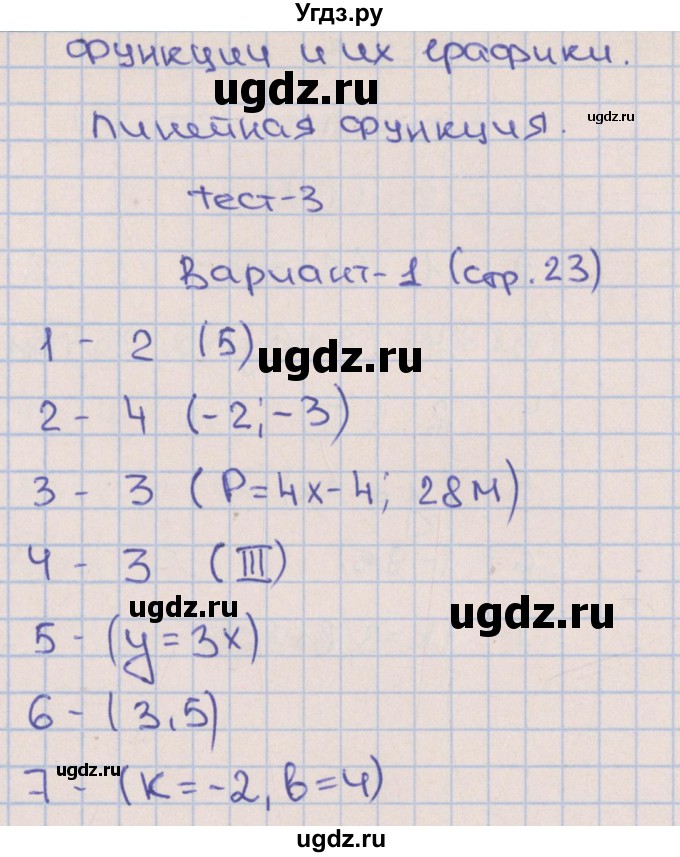 Угдз.ру
Функции и их графики.
ugdz.ru
ugdz.ru
Линейная функция.
тест-3
Вариант-1 (стр. 23)
1 - 2 (5)
ugdz.ru
2 - 4 (-2; -3)
3 - 3 (P=4x-4; 28м)
4 - 3 (III)
ugdz.ru
ugdz.ru
5 - (y=3x)
6 - (3,5)
ugdz.ru
7 - (K=-2, b=4)
ugdz.ru